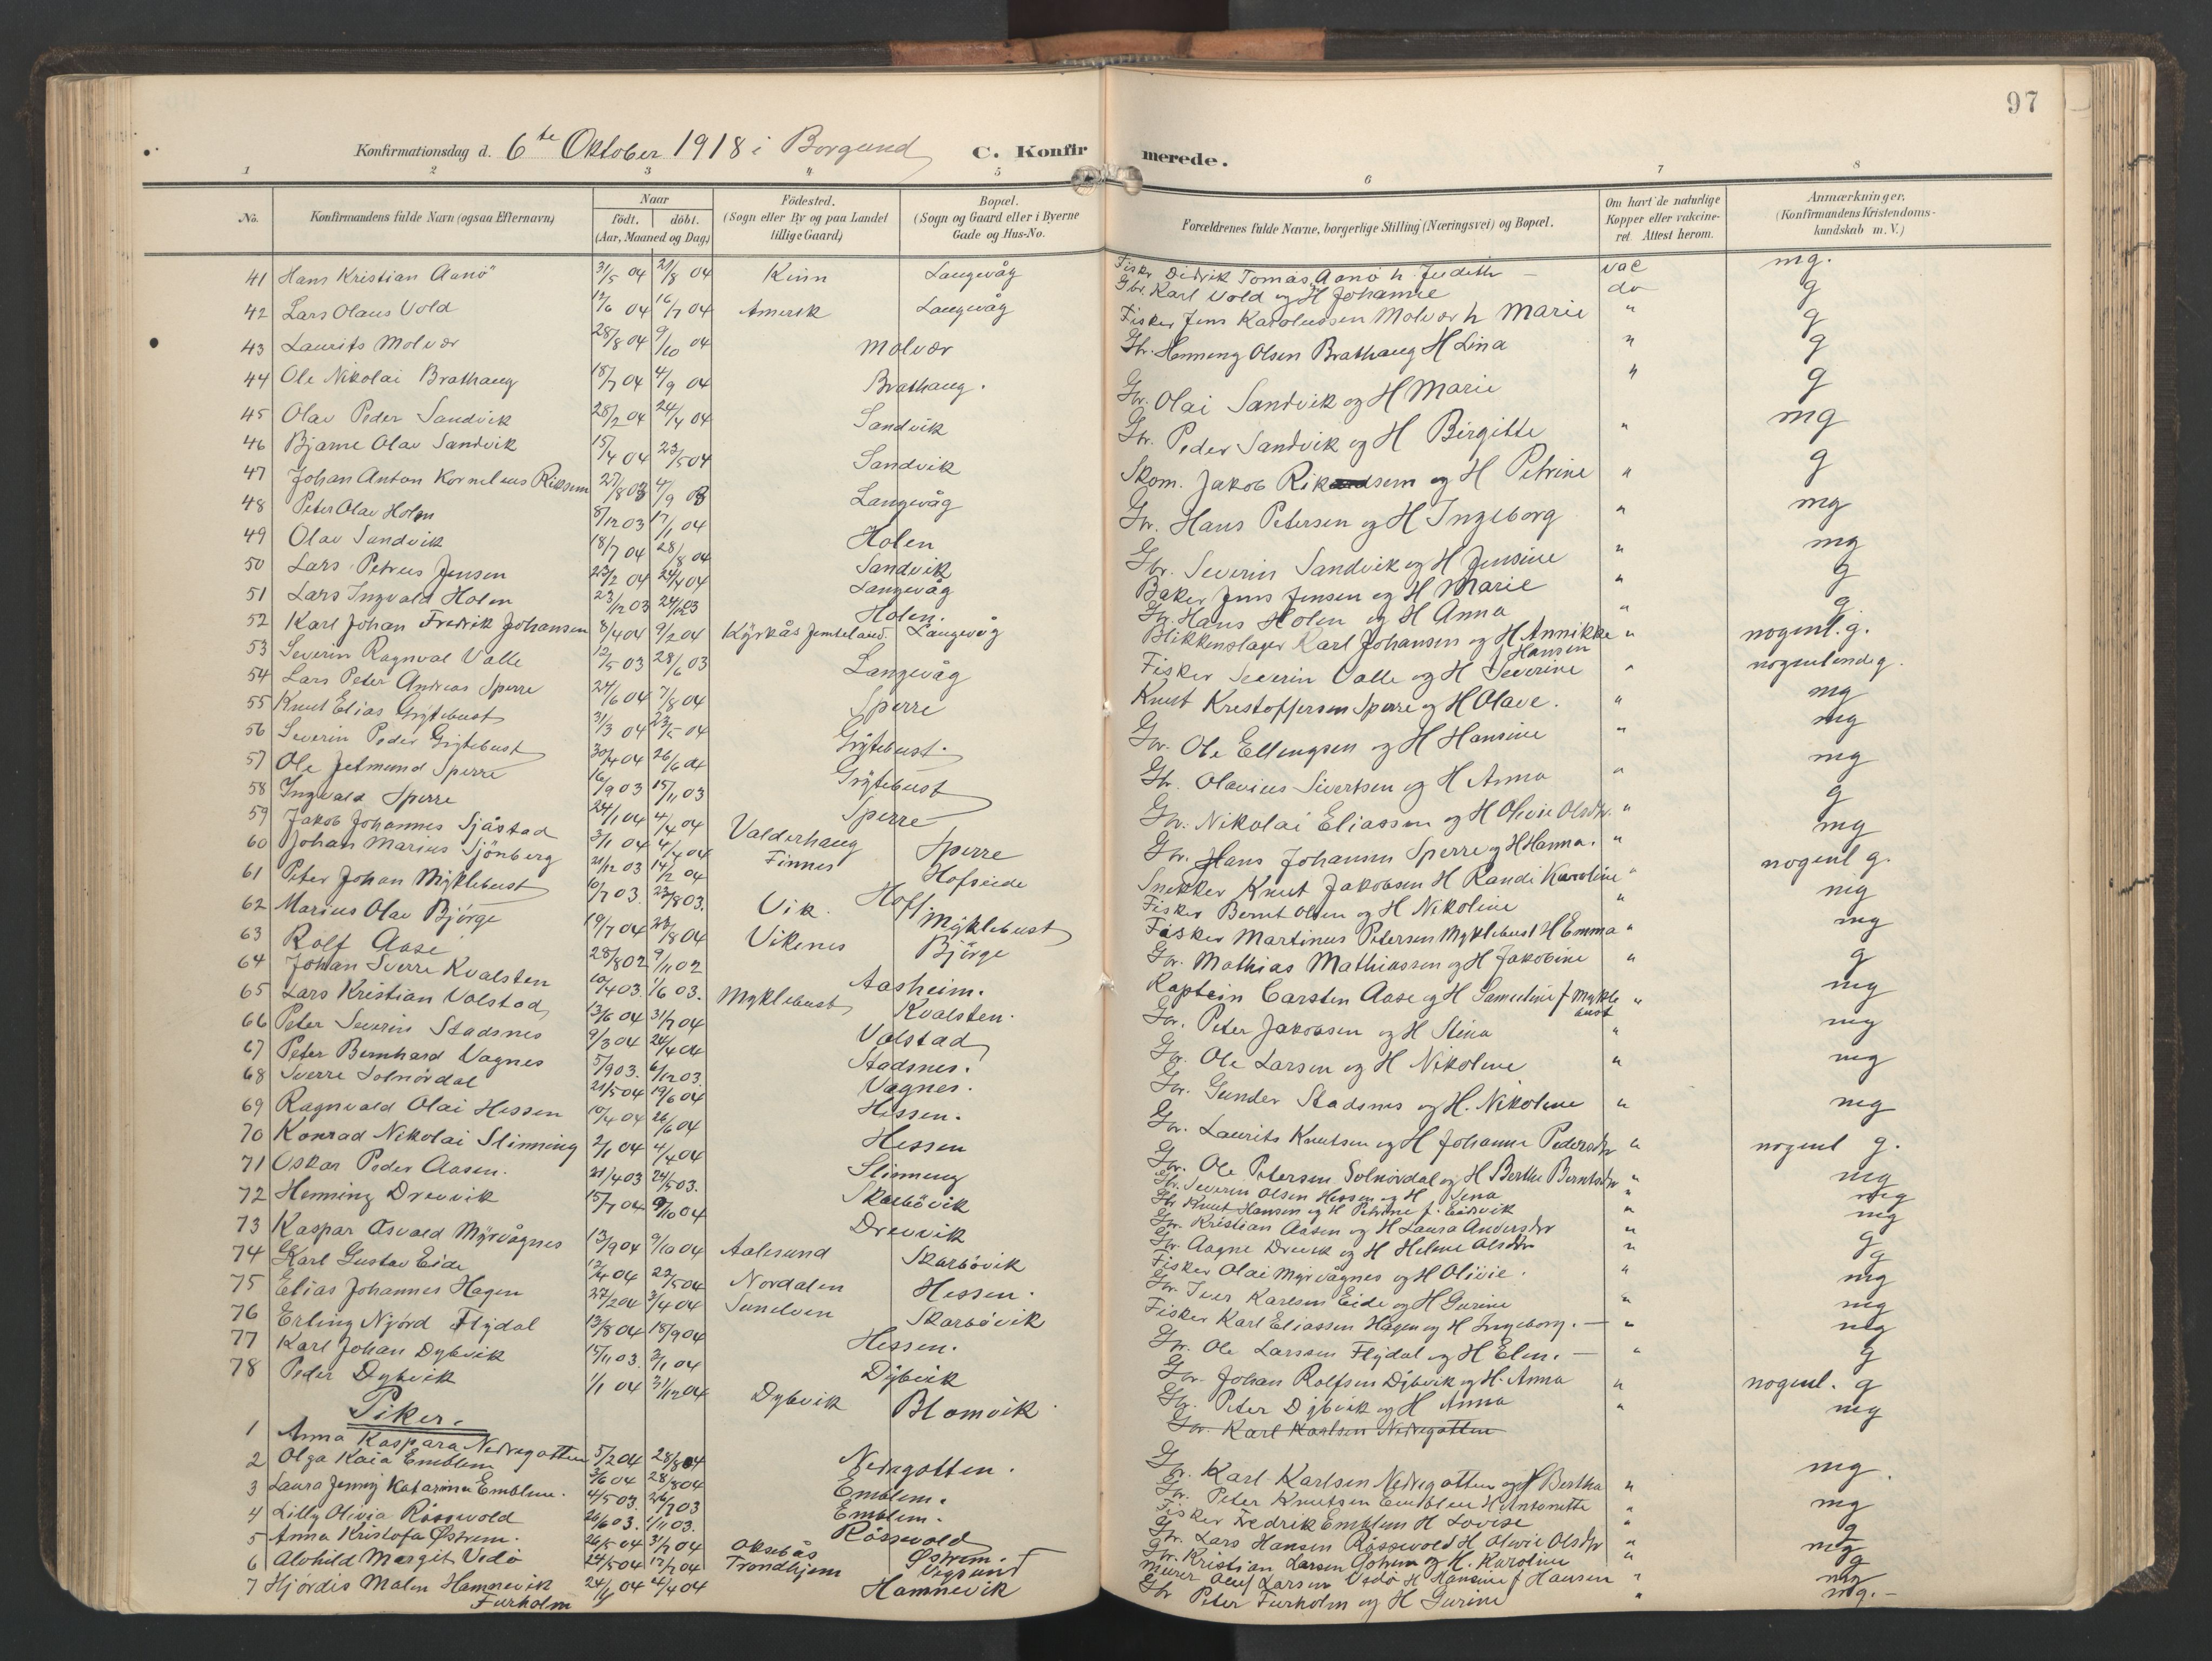 97
Konfirmationsdag d. 6te Oktober 1918 i Borgund C. Konfirmerede.
1 2 3 4 5 6 7 8
No. Konfirmandens fulde Navn (ogsaa Efternavn) Naar födt. döbt. (Aar, Maaned og Dag) Födested. (Sogn eller By og paa Landet tillige Gaard) Bopæl. (Sogn og Gaard eller i Byerne Gade og Hus-No. Forældrenes fulde Navne, borgerlige Stilling (Næringsvei) og Bopæl. Om havt de naturlige Kopper eller vakcineret. Attest herom. Anmærkninger. (Konfirmandens Kristendomskundskab m. V.)
41 Hans Kristian Aanö 31/5 04 21/8 04 Kinn Langevåg Fisker Didrik Tomas Aanö h Judith vac mg.
42 Lars Olaus Vold 12/6 04 16/7 04 Amerik Langevåg Gbr. Karl Vold og H Johanne do g
43 Laurits Molvær 28/8 04 9/10 04 Molvær Fisker Jens Karolussen Molvær h Marie " g
44 Ole Nikolai Brathaug 18/7 04 4/9 04 Brathaug. Gbr. Henning Olsen Brathaug H Lina " g
45 Olav Peder Sandvik 28/2 04 24/4 04 Sandvik Gbr. Olai Sandvik og H Marie " g
46 Bjarne Olav Sandvik 15/4 04 23/5 04 Sandvik Gbr. Peder Sandvik og H Birgitte " mg
47 Johan Anton Kornelius Riksem 27/8 03 4/9 03 Langevåg Skom. Jakob Riksem og H Petrine " g
48 Peter Olav Holm 8/12 03 17/1 04 Holen Gbr. Hans Petersen og H Ingeborg " mg
49 Olav Sandvik 18/7 04 28/8 04 Sandvik Gbr. Severin Sandvik og H Jensine " mg
50 Lars Petrus Jensen 23/2 04 24/4 04 Langevåg Baker Jens Jensen og H Marie " g
51 Lars Ingvald Holen 23/12 03 Holen. Gbr. Hans Holen og H Anna " g.
52 Karl Johan Fredrik Johansen 8/4 04 9/2 04 Kyrkås Jemteland. Langevåg Blikkenslager Karl Johansen og H Annikke Hansen " nogenl. g.
53 Severin Ragnval Valle 12/5 03 28/6 03 Langevåg Fisker Severin Valle og H Severine " nogenlunde g.
54 Lars Peter Andreas Sperre 24/6 04 7/8 04 Sperre Knut Kristoffersen Sperre og H Olave. " mg
55 Knut Elias Grytebust 31/3 04 23/5 04 Grytebust. Gbr. Ole Ellingsen og H Hansine " mg
56 Severin Peder Grytebust 30/4 04 26/6 04 Grytebust Gbr. Olavius Sivertsen og H Anna " mg
57 Ole Jetmund Sperre 16/9 03 15/11 03 Sperre Gbr. Nikolai Eliassen og H Olivie Olsdtr. " g
58 Ingvald Sperre 24/1 04 4/4 04 Sperre Gbr. Hans Johansen Sperre og H Hanna. " mg
59 Jakob Johannes Sjåstad 3/1 04 4/4 04 Valderhaug Hofseide Snekker Knut Jakobsen H Randi Karoline " nogenl g.
60 Johan Marius Sjönberg 21/12 03 14/2 04 Finnes Hoff. Fisker Bernt Olsen og H Nikoline " mg
61 Peter Johan Myklebust 10/7 03. 23/8 03. Vik. Myklebust Fisker Martinus Petersen Myklebust H Emma " mg
62 Marius Olav Björge 19/7 04 28/8 04 Vikenes Björge Gbr. Mathias Mathiassen og H Jakobine " g
63 Rolf Aase 28/8 02 9/11 02 Aasheim. Kaptein Carsten Aase og H Sameline f. Myklebust " mg
64 Johan Sverre Kvalsten 10/4 03. 1/6 03. Myklebust Kvalsten. Gbr. Peter Jakobsen og H Stina " mg
65 Lars Kristian Valstad 13/6 04 31/7 04 Valstad Gbr. Ole Larsen og H Nikoline " mg
66 Peter Severin Stadsnes 9/3 04 24/4 04 Stadsnes. Gbr. Gunder Stadsnes og H. Nikoline " mg
67 Peter Bernhard Vagnes 5/9 03. 6/12 03. Vagnes. Gbr. Laurits Knutsen og H Johanne Pedersdtr " nogenl g.
68 Sverre Solnördal 21/5 04 19/6 04 Hessen. Gbr. Ole Petersen Solnördal og H Berthe Berntsdtr " mg
69 Ragnvald Olai Hessen 10/4 04 26/6 04 Hessen Gbr. Severin Olsen Hessen og H Sena " mg
70 Konrad Nikolai Slinning 2/1 04 4/4 04 Slinning Gbr Knut Hansen og H Petrine f. Eidsvik " mg
71 Oskar Peder Aasen. 21/4 03 24/5 03. Skarbövik Gbr. Kristian Aasen og H Laura Andersdtr " g
72 Henning Drevvik 15/7 04 9/10 04 Drevvik Gbr. Aagne Drevik og H Helene Olsdtr " g
73 Kaspar Osvald Myrvågnes 13/9 04 9/10 04 Aalesund Skarbövik Fisker Olai Myrvågnes og H Olivie. " mg
74 Karl Gustav Eide 12/4 04 22/5 04 Nordalen Hessen. Gbr. Iver Karlsen Eide og H Gurine " mg
75 Elias Johannes Hagen 27/2 04 3/4 04 Sunelven Skarbövik Fisker Karl Eliassen Hagen og H Ingeborg. — " mg
76 Erling Njörd Flydal 13/8 04 18/9 04 Hessen. Gbr. Ole Larssen Flydal og H Elen. — " g
77 Karl Johan Dybvik 15/11 03. 2/1 04 Dybvik Gbr. Johan Rolfsen Dybvik og H. Anna " nogenl. g
78 Peder Dybvik 1/1 04 31/12 04 Dybvik Blomvik Gbr. Peter Dybvik og H Anna " mg
Gbr. Karl Karlsen Nedregotten
Piker.
1 Anna Kaspara Nedregotten 5/2 04 28/8 04 Nedregotten. Gbr. Karl Karlsen Nedregotten og H Bertha " mg.
2 Olga Kaia Emblem 3/6 04 28/8 04 Emblem. Gbr. Peter Knutsen Emblem H Antonette " mg
3 Laura Jenny Katarina Emblem. 4/5 03. 26/7 03 Emblem. Fisker Fredrik Emblem H Lovise " g
4 Lilly Olivia Rösevold 26/6 03. 1/11 03. Rösevold Gbr. Lars Hansen Rösevold H Olivie Olsdtr " mg
5 Anna Kristofa Östrem. 26/5 04 31/7 04 Östrem. Gbr. Kristian Larsen og H. Karoline " g
6 Alvhild Margit Vedö 24/5 04 17/7 04 Trondhjem Vegsund Murer Oluf Larsen Vedö H Hansine f Hansen " mg
7 Hjördis Malen Hamnevik Furholm 24/1 04 4/4 04 Hamnevik Gbr Peter Furholm og H Gurine " mg. —